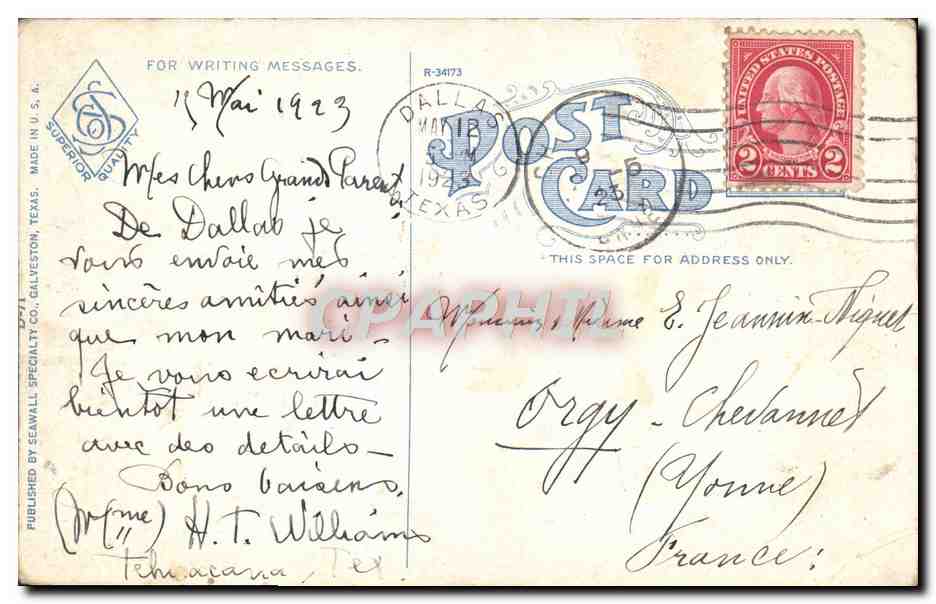 FOR WRITING MESSAGES.
SUPERIOR QUALITY
PUBLISHED BY SEAWALL SPECIALTY CO., GALVESTON, TEXAS. MADE IN U. S. A.
Mai 1923
Mes Chers Grands Parents
De Dallas je
vous envoie mes
sincères amitiés ainsi
que mon mari -
Je vous ecrirai
bientot une lettre
avec des details -
Bons baisers,
(Mme) H. T. Williams
Tehuacana, Tex.
R-34173
POST CARD
DALLAS
MAY 12
TEXAS
5
23
UNITED STATES POSTAGE
2 CENTS 2
THIS SPACE FOR ADDRESS ONLY.
CPAPHIL
E. Jeannin-Niquet
Orgy - Chevannes
(Yonne)
France.